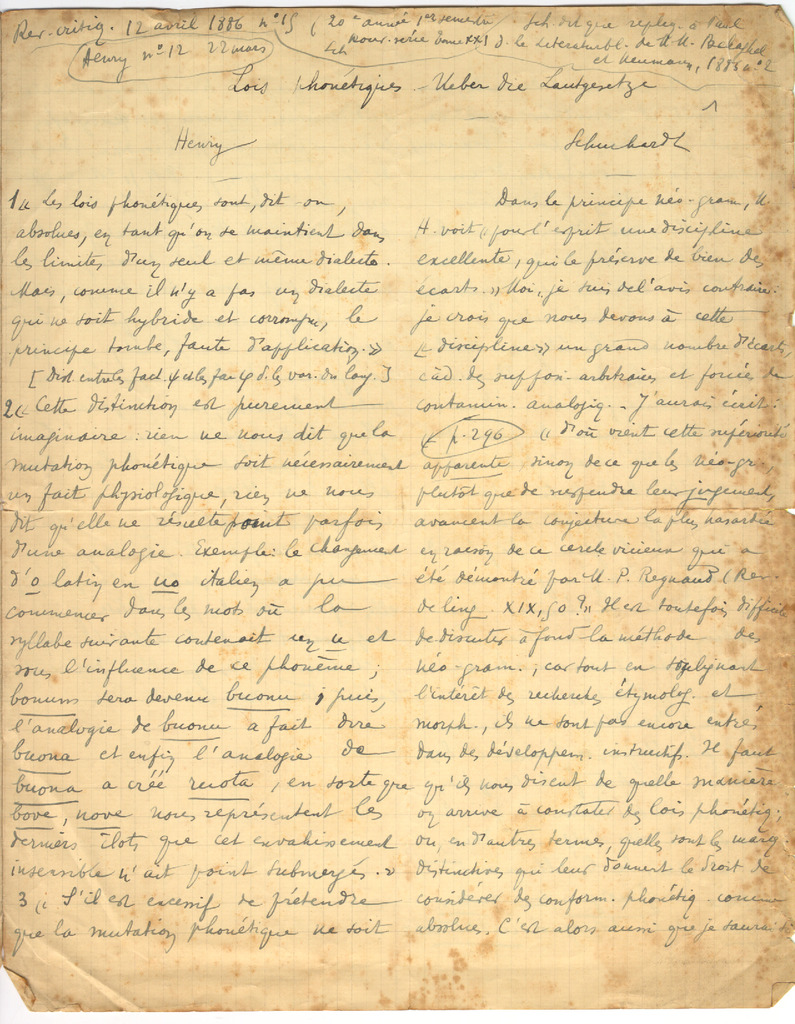 Rev. critiq. 12 avril 1886 nº 15
(Henry nº 12 22 mars)
(20e année 1er semestre
nouv. série tome XXI
Sch. dit que repliq. à Paul
d. le Literaturbl. de M. M. Behaghel
et Neumann, 1886 nº 2
Lois phonétiques - Ueber die Lautgesetze
Henry
1 « Les lois phonétiques sont, dit-on,
absolues, en tant qu'on se maintient dans
les limites d'un seul et même dialecte.
Mais, comme il n'y a pas un dialecte
qui ne soit hybride et corrompu, le
principe tombe, faute d'application. »
[Dist. entre les fact. ψ et les fac φ d. les var. du lang.]
2 « Cette distinction est purement
imaginaire : rien ne nous dit que la
mutation phonétique soit nécessairement
un fait physiologique, rien ne nous
dit qu'elle ne résulte point parfois
d'une analogie. Exemple : le changement
d'o latin en uo italien a pu
commencer dans les mots où la
syllabe suivante contenait un u et
sous l'influence de ce phonème ;
bonum sera devenu buonu ; puis,
l'analogie de buonu a fait dire
buona et enfin l'analogie de
buona a créé ruota, en sorte que
bove, nove nous représentent les
derniers îlots que cet envahissement
insensible n'ait point submergés. »
3 « S'il est excessif de prétendre
que la mutation phonétique ne soit
Schuchardt
Dans le principe néo-gram, M.
H. voit « pour l'esprit une discipline
excellente, qui le préserve de bien des
écarts. » Moi, je suis de l'avis contraire :
je crois que nous devons à cette
« discipline » un grand nombre d'écarts,
càd. des suppos. arbitraires et forcées de
contamin. analogiq. - J'aurais écrit :
(p. 296) « D'où vient cette supériorité
apparente, sinon de ce que les néo-gr.,
plutôt que de suspendre leur jugement,
avancent la conjecture la plus hasardée
en raison de ce cercle vicieux qui a
été démontré par M. P. Regnaud (Rev.
de ling. XIX, 50 ?» Il est toutefois difficile
de discuter à fond la méthode des
néo-gram. ; car tout en soulignant
l'intérêt des recherches étymolog. et
morph., ils ne sont pas encore entrés
dans des développem. instructifs. Il faut
qu'ils nous disent de quelle manière
on arrive à constater des lois phonétiq. ;
ou, en d'autres termes, quelles sont les marq.
distinctives qui leur donnent le droit de
considérer des conform. phonétiq. comme
absolues. C'est alors aussi que je saurai si